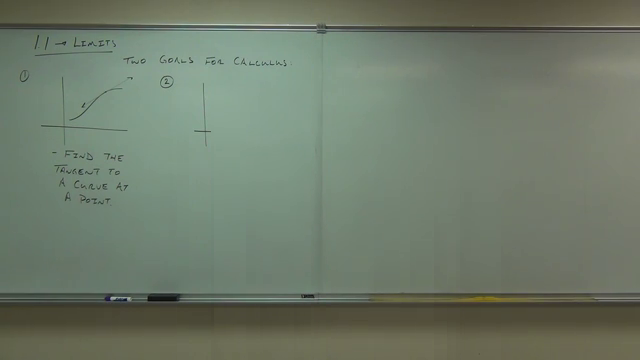 1.1 → LIMITS
TWO GOALS FOR CALCULUS.
①
②
- FIND THE
TANGENT TO
A CURVE AT
A POINT.